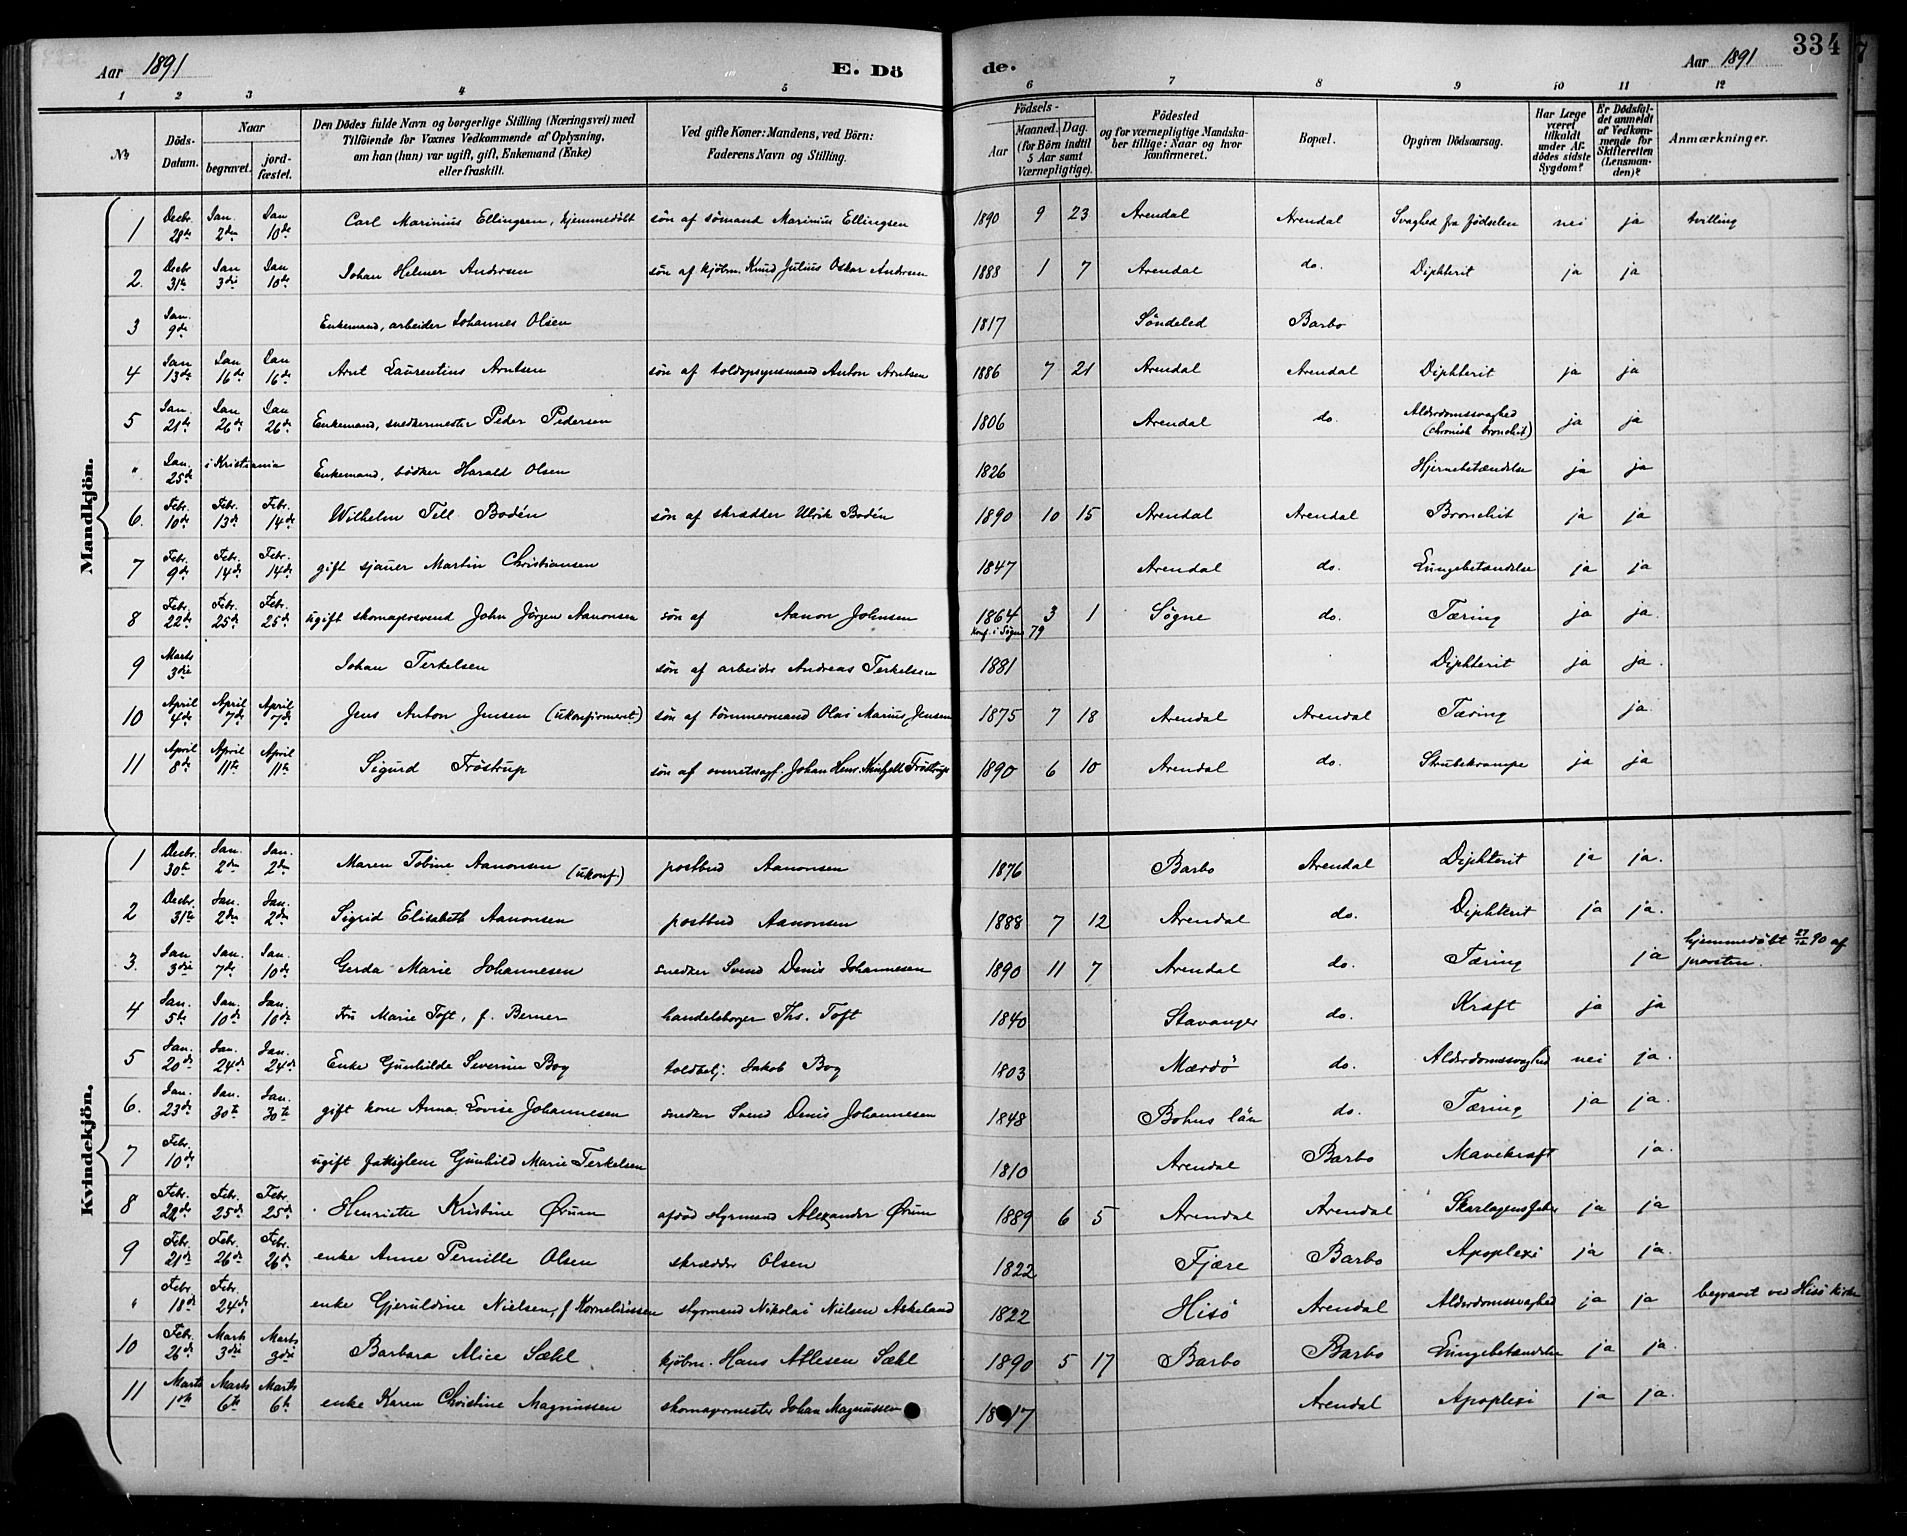 Aar 1891 E. Dö de. Aar 1891 334
1 2 3 4 5 6 7 8 9 10 11 12
No. Döds-Datum. Naar begravet. jordfæstet. Den Dödes fulde Navn og borgerlige Stilling (Næringsvei) med Tilföiende for Voxnes Vedkommende af Oplysning, om han (hun) var ugift, gift, Enkemand (Enke) eller fraskilt. Ved gifte Koner: Mandens, ved Börn: Faderens Navn og Stilling. Födsels- Aar Maaned. Dag. (for Börn indtil 5 Aar samt Værnepligtige). Födested og for værnepligtige Mandskaber tillige: Naar og hvor konfirmeret. Bopæl. Opgiven Dödsaarsag. Har Læge været tilkaldt under Afdödes sidste Sygdom? Er Dödsfaldet anmeldt af Vedkommende for Skifteretten (Lensmanden)? Anmærkninger.
Mandkjön.
1 Decbr. 28de Jan. 2den Jan 10de Carl Marinius Ellingsen, hjemmedöbt sön af sömand Marinius Ellingsen 1890 9 23 Arendal Arendal Svaghed fra födselen nei ja tvilling
2. Decbr 31te Jan 3die Jan 10de Johan Helmer Andersen sön af kjöbm. Knud Julius Oskar Andersen 1888 1 7 Arendal do. Diphterit ja ja
3 Jan. 9de Enkemand, arbeider Johannes Olsen 1817 Söndeled Barbo
4 Jan 13de Jan 16de Jan 16de Arnt Laurentius Arntsen sön af toldopsynsmand Anton Arntsen 1886 7 21 Arendal Arendal Diphterit ja ja
5 Jan. 21de Jan 26de Jan 26de Enkemand, snedkermester Peder Pedersen 1806 Arendal do. Alderdomssvaghed (chronisk bronchit) ja ja
" Jan. 25de i Kristiania Enkemand, bödker Harald Olsen 1826 Hjernebetændelse ja ja
6. Febr. 10de Febr. 13de Febr 14de Wilhelm Tell Bodén sön af skrædder Ulrik Bodén 1890 10 15 Arendal Arendal Bronchit ja ja
7 Febr. 9de Febr. 14de Febr. 14de gift sjauer Martin Christiansen 1847 Arendal do. Lungebetændelse ja ja
8 Febr. 22de Febr. 25de Febr. 25de ugift skomagersvend John Jörgen Aanonsen sön af Aanon Johnsen 1864 3 1 Søgne do. Tæring ja ja.
Konf. i Søgne 79
9 Marts 3die Johan Terkelsen sön af arbeider Andreas Terkelsen 1881 Diphterit ja ja.
10 April 4de April 7de April 7de Jens Anton Jensen (ukonfirmeret) sön af tömmermand Olai Marius Jensen 1875 7 18 Arendal Arendal Tæring ja.
11 April 8de April 11te April 11te Sigurd Fröstrup sön af overretssagf. Johan Henr. Fröstrup 1890 6 10 Arendal do. Strubekrampe ja ja
Kvindekjön.
1 Decbr. 30te Jan. 2den Jan. 2den Maren Tobine Aanonsen (ukonf.) postbud Aanonsen 1876 Barbo Arendal Diphterit ja ja.
2 Decbr. 31te Jan. 2den Jan. 2den Sigrid Elisabeth Aanonsen postbud Aanonsen 1888 7 12 Arendal do. Diphterit ja ja.
3. Jan 3die Jan. 7de Jan. 10de Gerda Marie Johannesen snedker Svend Denis Johannesen 1890 11 7 Arendal do. Tæring ja hjemmedöbt 27/12 90 af provsten.
4 Jan. 5te Jan. 10de Jan. 10de Fru Marie Toft, f. Berner handelsborger Ths. Toft 1840 Stavanger do. Kræft ja ja
5 Jan. 20de Jan. 24de Jan. 24de Enke Gunhilde Severine Bog toldbetj. Jakob Bog 1803 Mærdö do. Alderdomssvaghed nei ja.
6. Jan. 23de Jan. 30te Jan. 30te gift kone Anna Lovise Johannesen snedker Svend Denis Johannesen 1848 Bohus län do. Tæring ja ja.
7 Febr. 10de ugift fattiglem Gunhild Marie Terkelsen 1810 Arendal Barbo Mavekræft ja.
8 Febr. 22de Febr. 25de Febr. 25de Henriette Kristine Ørum afdöd styrmand Alexander Ørum 1889 6 5 Arendal Arendal Skarlagensfeber ja ja
9 Febr. 21de Febr. 26de Febr. 26de enke Anne Pernille Olsen skrædder Olsen 1822 Fjære Barbo Apoplexi ja ja.
" Febr. 18de Febr. 24de enke Gjeruldine Nielsen, f. Korneliussen styrmand Nikolai Nielsen Askeland 1822 Hisö Arendal Alderdomssvaghed ja ja begravet ved Hisö kirke
10 Febr. 26de Marts 3die Marts 3die Barbara Alice Sæhl kjöbm. Hans Atlesen Sæhl 1890 5 17 Barbo Barbo Lungebetændelse ja ja.
11 Marts 1ste Marts 6te Marts 6te enke Karen Christine Magnussen skomagermester Johan Magnussen 1817 Arendal Apoplexi ja ja.